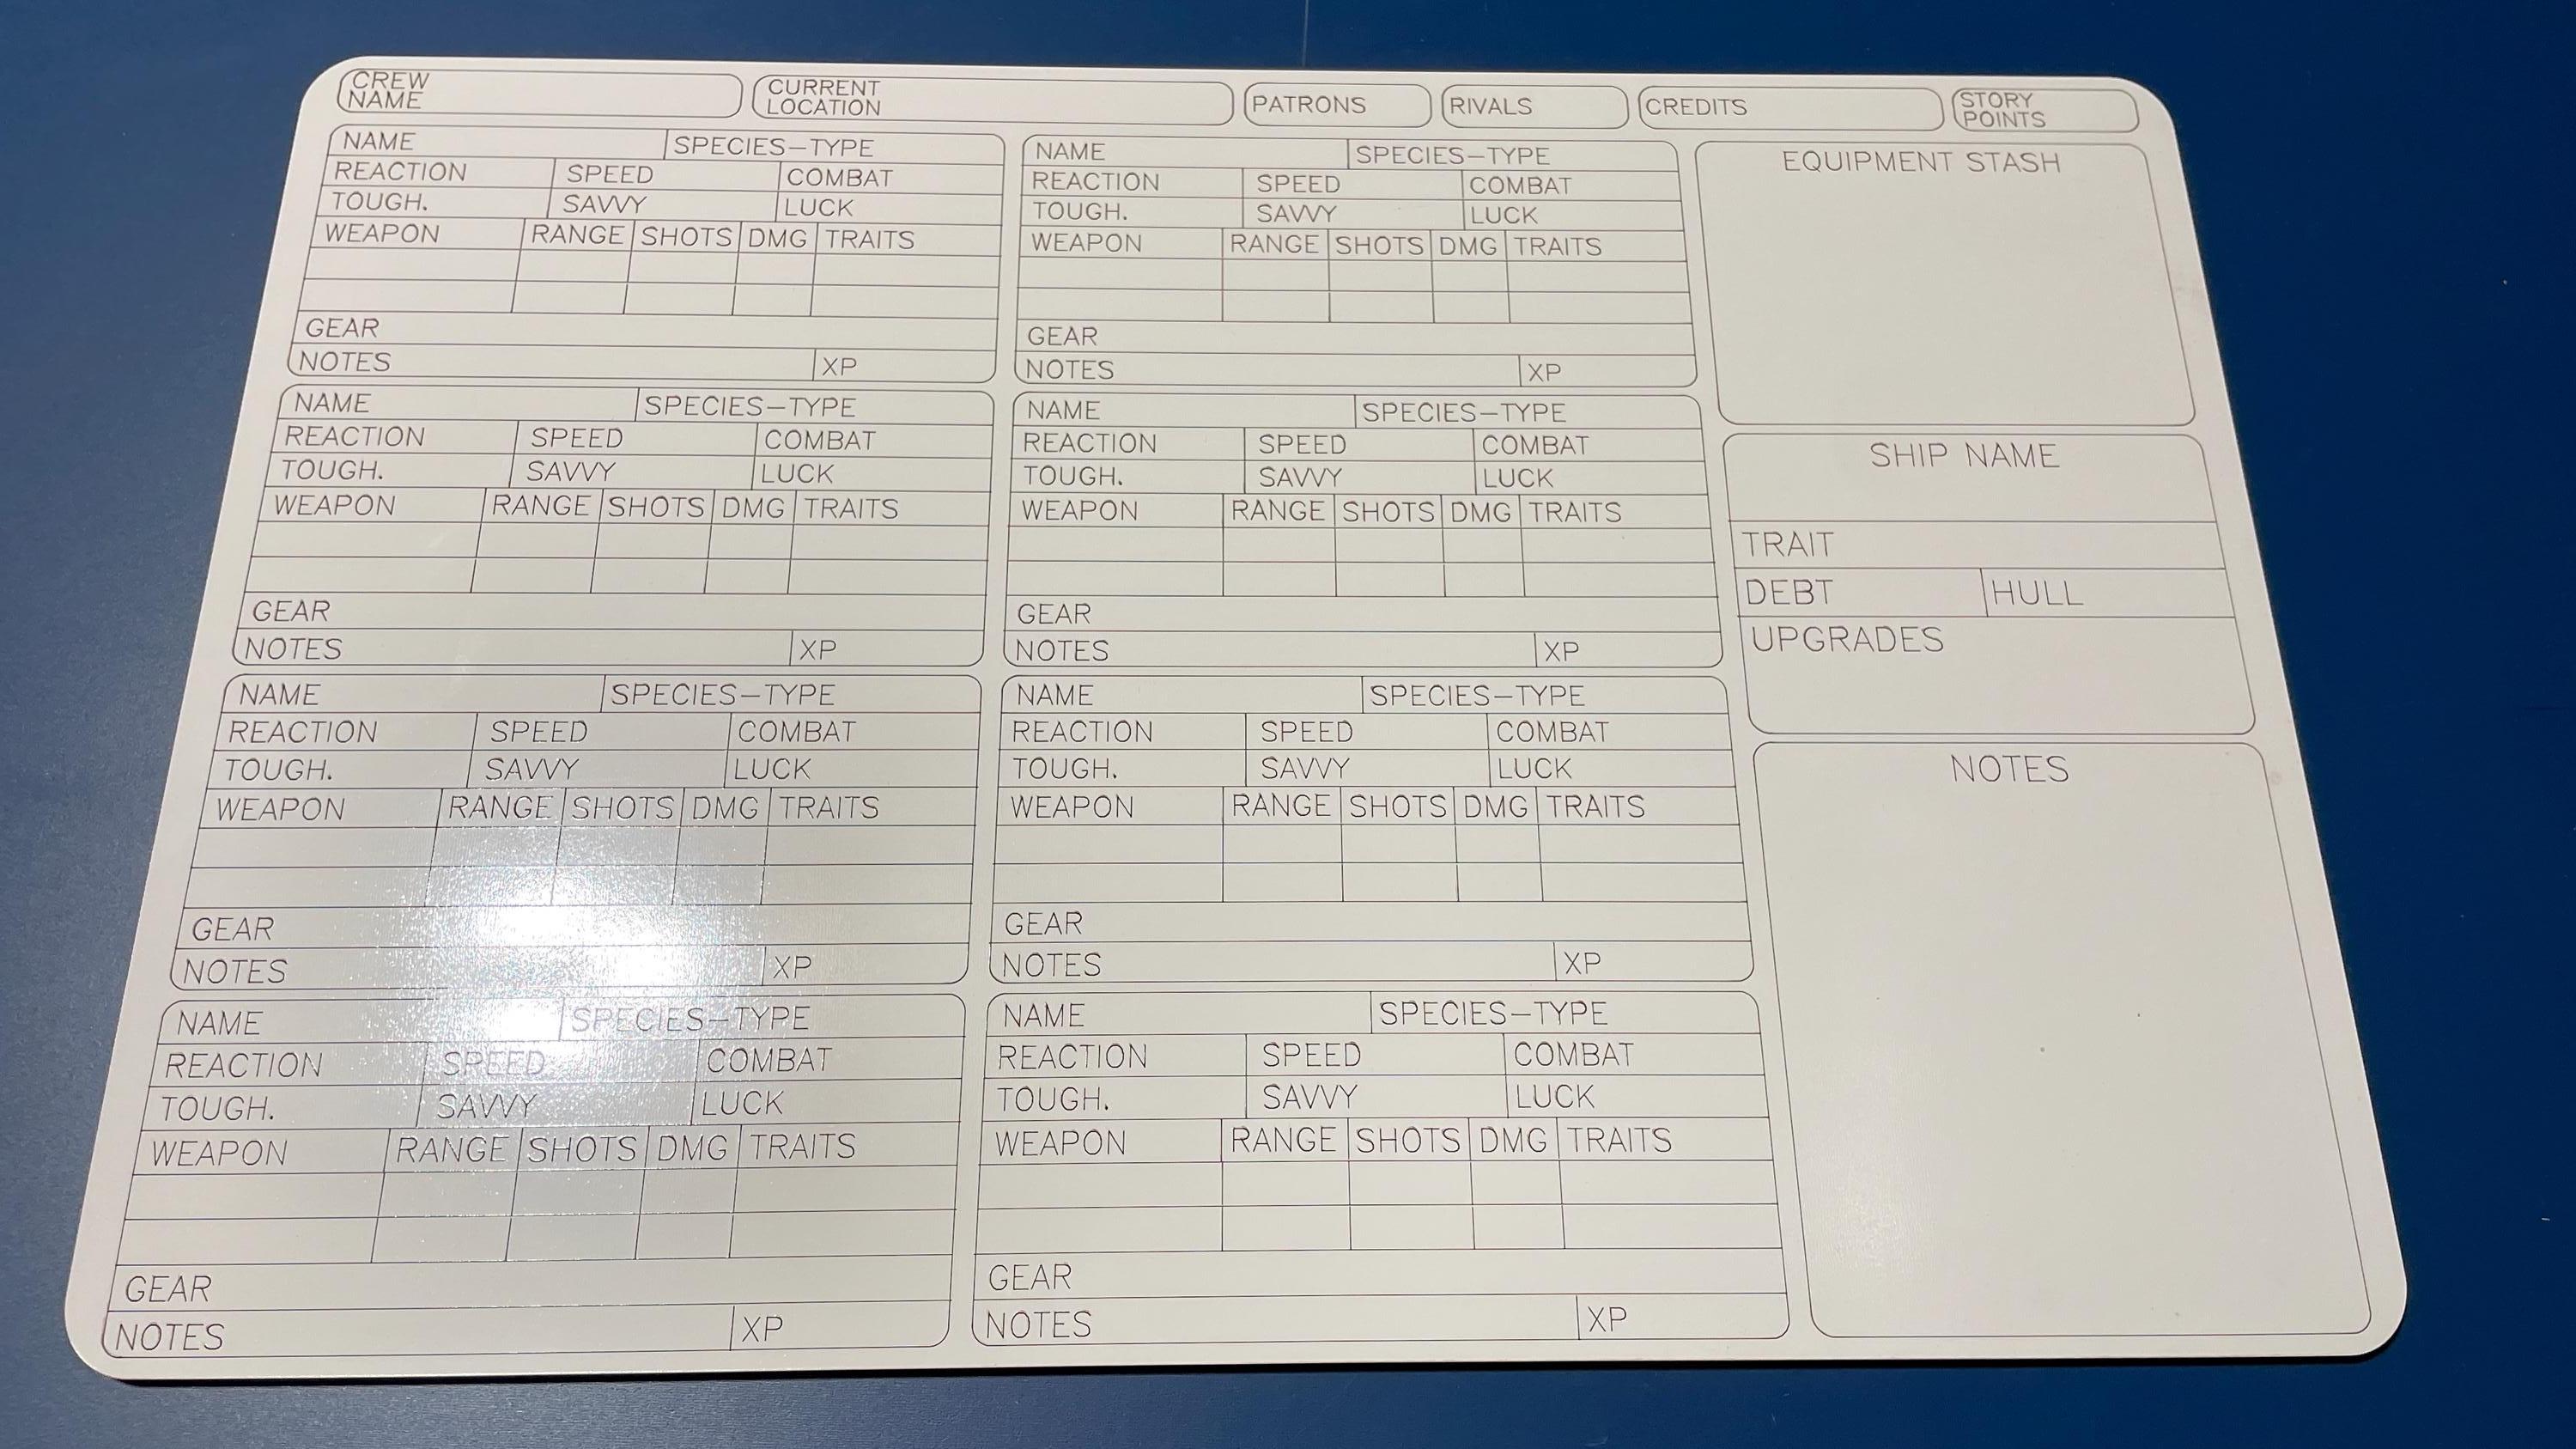 CREW NAME CURRENT LOCATION PATRONS RIVALS CREDITS STORY POINTS
NAME SPECIES-TYPE
REACTION SPEED COMBAT
TOUGH. SAVVY LUCK
WEAPON RANGE SHOTS DMG TRAITS
GEAR
NOTES XP
NAME SPECIES-TYPE
REACTION SPEED COMBAT
TOUGH. SAVVY LUCK
WEAPON RANGE SHOTS DMG TRAITS
GEAR
NOTES XP
NAME SPECIES-TYPE
REACTION SPEED COMBAT
TOUGH. SAVVY LUCK
WEAPON RANGE SHOTS DMG TRAITS
GEAR
NOTES XP
NAME SPECIES-TYPE
REACTION SPEED COMBAT
TOUGH. SAVVY LUCK
WEAPON RANGE SHOTS DMG TRAITS
GEAR
NOTES XP
NAME SPECIES-TYPE
REACTION SPEED COMBAT
TOUGH. SAVVY LUCK
WEAPON RANGE SHOTS DMG TRAITS
GEAR
NOTES XP
NAME SPECIES-TYPE
REACTION SPEED COMBAT
TOUGH. SAVVY LUCK
WEAPON RANGE SHOTS DMG TRAITS
GEAR
NOTES XP
NAME SPECIES-TYPE
REACTION SPEED COMBAT
TOUGH. SAVVY LUCK
WEAPON RANGE SHOTS DMG TRAITS
GEAR
NOTES XP
NAME SPECIES-TYPE
REACTION SPEED COMBAT
TOUGH. SAVVY LUCK
WEAPON RANGE SHOTS DMG TRAITS
GEAR
NOTES XP
EQUIPMENT STASH
SHIP NAME
TRAIT
DEBT HULL
UPGRADES
NOTES